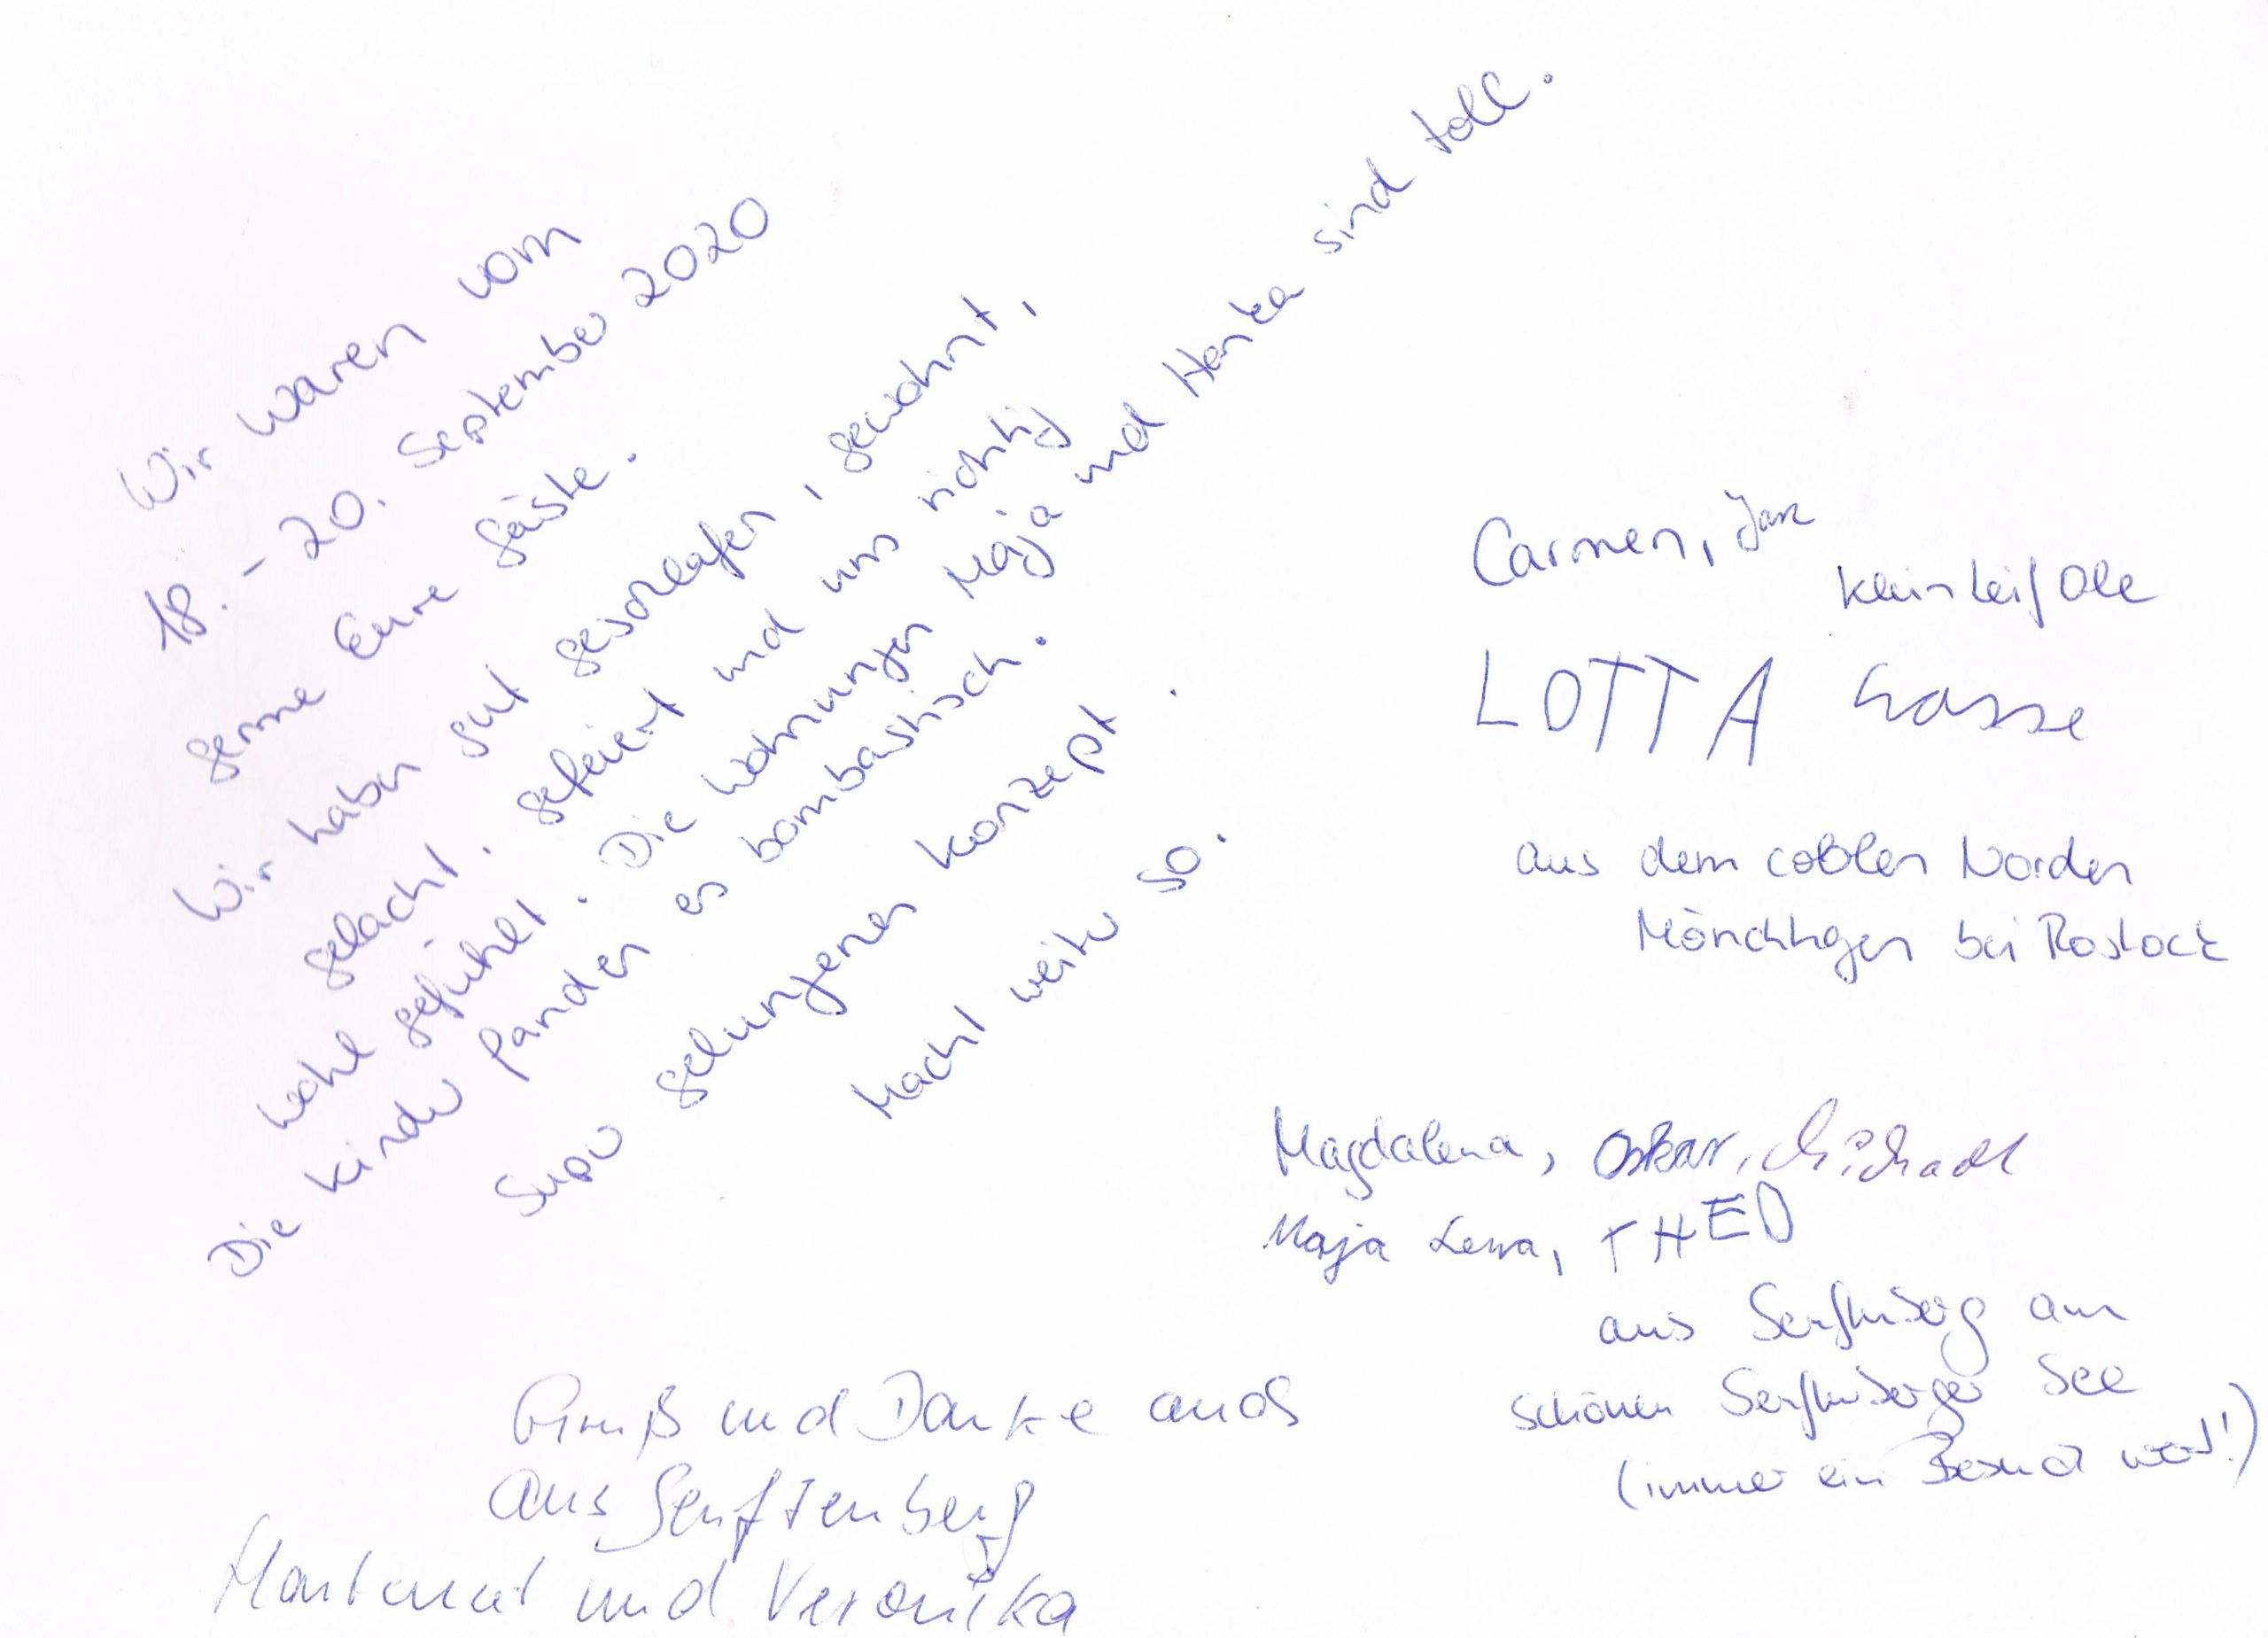 Wir waren vom
18. - 20. September 2020
gerne Eure Gäste.
Wir haben gut geschlafen, gewohnt,
gelacht, gefeiert und uns richtig
wohl gefühlt. Die Wohnungen Maja und Hanka sind toll.
Die Kinder fanden es bombastisch.
Super gelungenes Konzept.
Macht weiter so.
Carmen, Jan
klein Leif Ole
LOTTA Hasse
aus dem coolen Norden
Mönchhagen bei Rostock
Magdalena, Oskar, Michael
Maja Lena, THEO
aus Senftenberg am
schönen Senftenberger See
(immer ein Besuch wert!)
Gruß und Danke auch
aus Senftenberg
Hartmut und Veronika